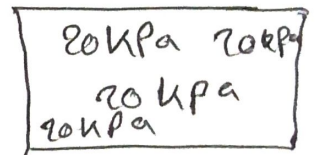 20 KPa 20 KPa
20 KPa
20 KPa